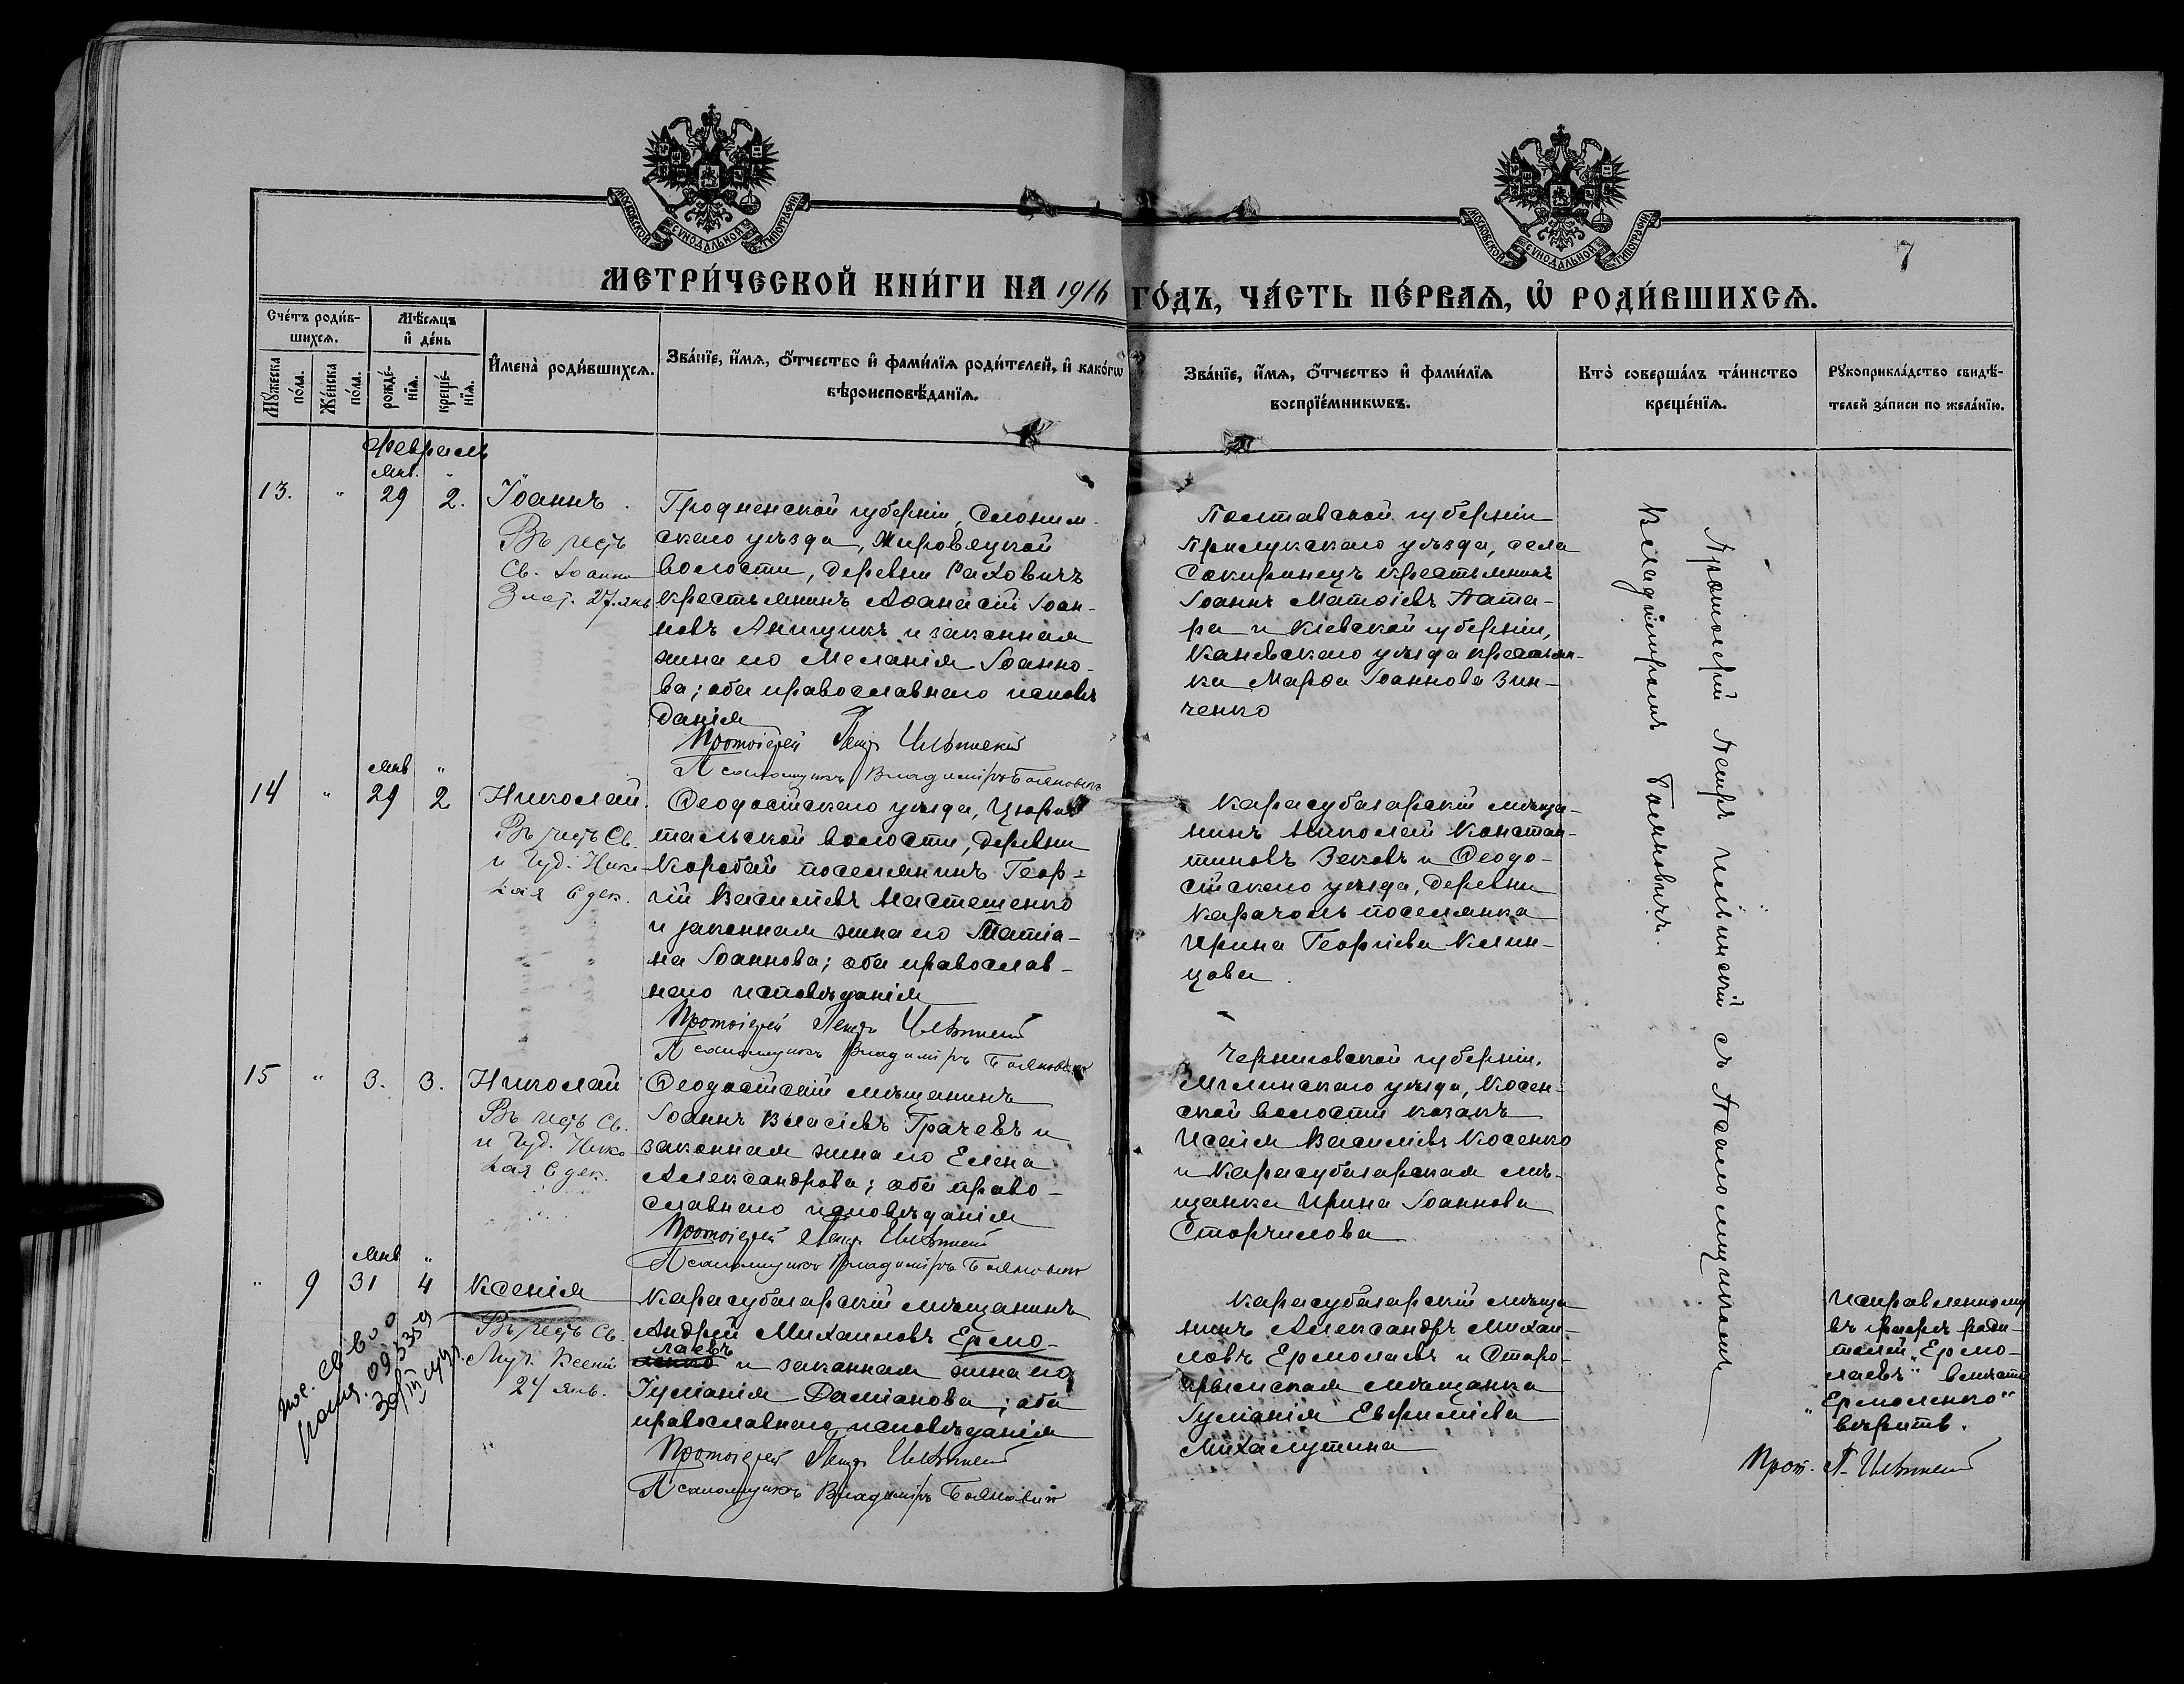 МОСКОВСКОЙ СѴНОДАЛЬНОЙ ТИПОГРАФІИ
МОСКОВСКОЙ СѴНОДАЛЬНОЙ ТИПОГРАФІИ
7
МЕТРИ́ЧЕСКОЙ КНИ́ГИ НА 1916 ГО́ДЪ, ЧА́СТЬ ПЕ́РВАѦ, Ѡ҆ РОДИ́ВШИХСѦ.
Сче́тъ роди́в-
шихсѧ.
Мѣ́сѧцъ
и҆ де́нь
Мꙋ́жеска
по́ла.
Же́нска
по́ла.
рожде́-
нїѧ.
креще́-
нїѧ.
И҆мена̀ роди́вшихсѧ.
Зва́нїе, и҆́мѧ, ѻ҆́тчество и҆ фами́лїѧ роди́телей, и҆ како́гѡ
вѣроисповѣ́данїѧ.
Зва́нїе, и҆́мѧ, ѻ҆́тчество и҆ фами́лїѧ
воспрїе́мникѡвъ.
Кто̀ соверша́лъ та́инство
креще́нїѧ.
Рꙋкоприкла́дство свидѣ́-
телей за́писи по жела́нїю.
Февраль
Янв. "
13. " 29 2. Іоаннъ.
Въ честь
Св. Іоанна
Злат. 27. янв
Гродненской губерніи, Слоним-
скаго уѣзда, Жировецкой
волости, деревни Раховичъ
крестьянинъ Аѳанасій Іоан-
новъ Анищикъ и законная
жена его Меланія Іоанно-
ва; оба православнаго исповѣ
данія
Протоіерей Петръ
Псаломщикъ Владиміръ Бояновичъ
Полтавской губерніи
Прилукскаго уѣзда, села
Сокиринецъ крестьянинъ
Іоаннъ Матѳіевъ Пата-
ра и Кіевской губерніи,
Каневскаго уѣзда крестьян-
ка Марѳа Іоаннова Зин-
ченко
Протоіерей Петръ съ Псаломщикомъ
Владиміромъ Бояновичъ.
Янв "
14 " 29 2 Николай.
Въ честь Св.
и Чуд. Нико-
лая 6 дек.
Ѳеодосійскаго уѣзда, Цюрих
тальской волости, деревни
Коробай поселянинъ Геор-
гій Василіевъ Мастешенко
и законная жена его Татіа-
на Іоаннова; оба православ-
наго исповѣданія
Протоіерей Петръ
Псаломщикъ Владиміръ Бояновичъ
Карасубазарскій мѣща-
нинъ Николай Констан-
тиновъ Зековъ и Ѳеодо-
сійскаго уѣзда, деревни
Карачоль поселянка
Ирина Георгіева Клин-
цова.
15 " 3. 3. Николай
Въ честь Св.
и Чуд. Нико
лая 6 дек.
Ѳеодосійскій мѣщанинъ
Іоаннъ Власіевъ Грачевъ и
законная жена его Елена
Александрова; оба право-
славнаго исповѣданія
Протоіерей Петръ
Псаломщикъ Владиміръ Бояновичъ
Черниговской губерніи,
Мглинскаго уѣзда, Косен-
ской волости казакъ
Исаія Василіевъ Косенко
и Карасубазарская мѣ-
щанка Ирина Іоаннова
Сторчилова
Янв "
" 9 31 4 Ксенія
Въ честь Св.
Муч. Ксеніи
24 янв.
Карасубазарскій мѣщанинъ
Андрей Михаиловъ Ермо-
лаевъ
ленко и законная жена его
Іуліанія Даміанова; оба
православнаго исповѣданія
Протоіерей Петръ
Псаломщикъ Владиміръ Бояновичъ
Карасубазарскій мѣща
нинъ Александръ Михаи-
ловъ Ермолаевъ и Старо-
крымская мѣщанка
Іуліанія Евфиміева
Михалутина
Исправленному
въ графѣ роди-
телей „Ермо-
лаевъ" вмѣсто
„Ермоленко"
вѣрить.
Прот. П.